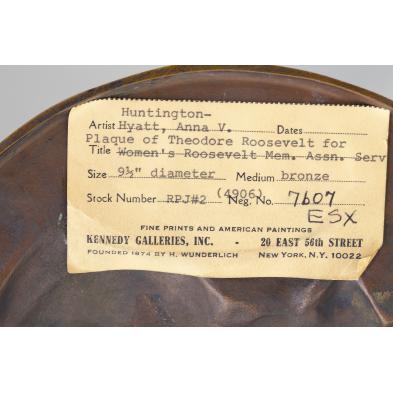 Huntington-
Artist Hyatt, Anna V. Dates
Plaque of Theodore Roosevelt for
Title Women's Roosevelt Mem. Assn. Serv
Size 9½" diameter Medium bronze
Stock Number RPJ#2 (4906) Neg. No. 7607
ESX
FINE PRINTS AND AMERICAN PAINTINGS
KENNEDY GALLERIES, INC. - 20 EAST 56th STREET
FOUNDED 1874 BY H. WUNDERLICH NEW YORK, N.Y. 10022